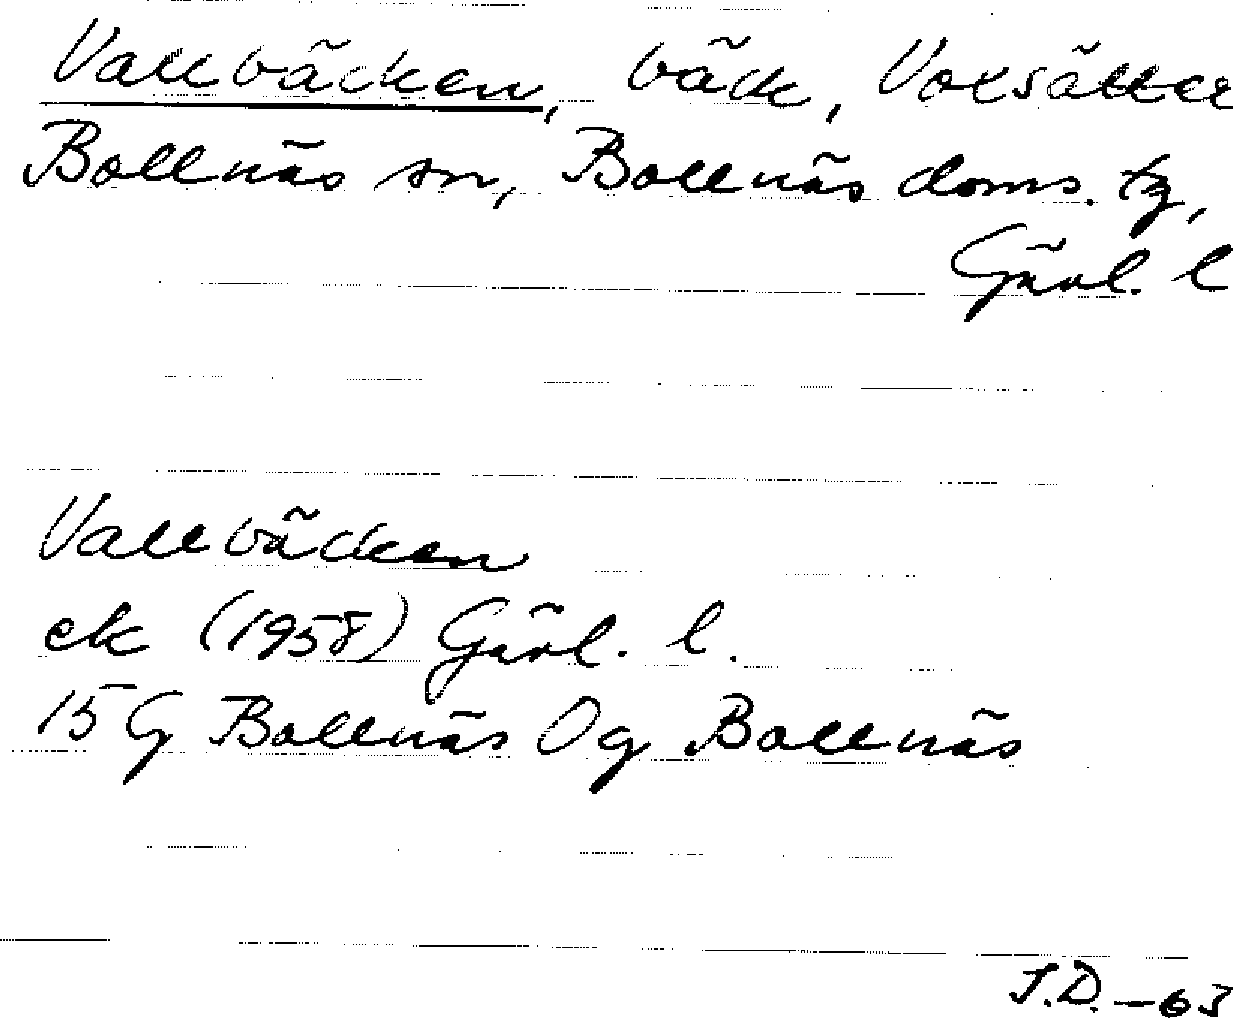 Vallbäcken, bäck, Voxsätter
Bollnäs sn, Bollnäs doms. tg,
Gävl. l
Vallbäcken
ek (1958) Gävl. l.
15 G Bollnäs 0g Bollnäs
J.D. -63